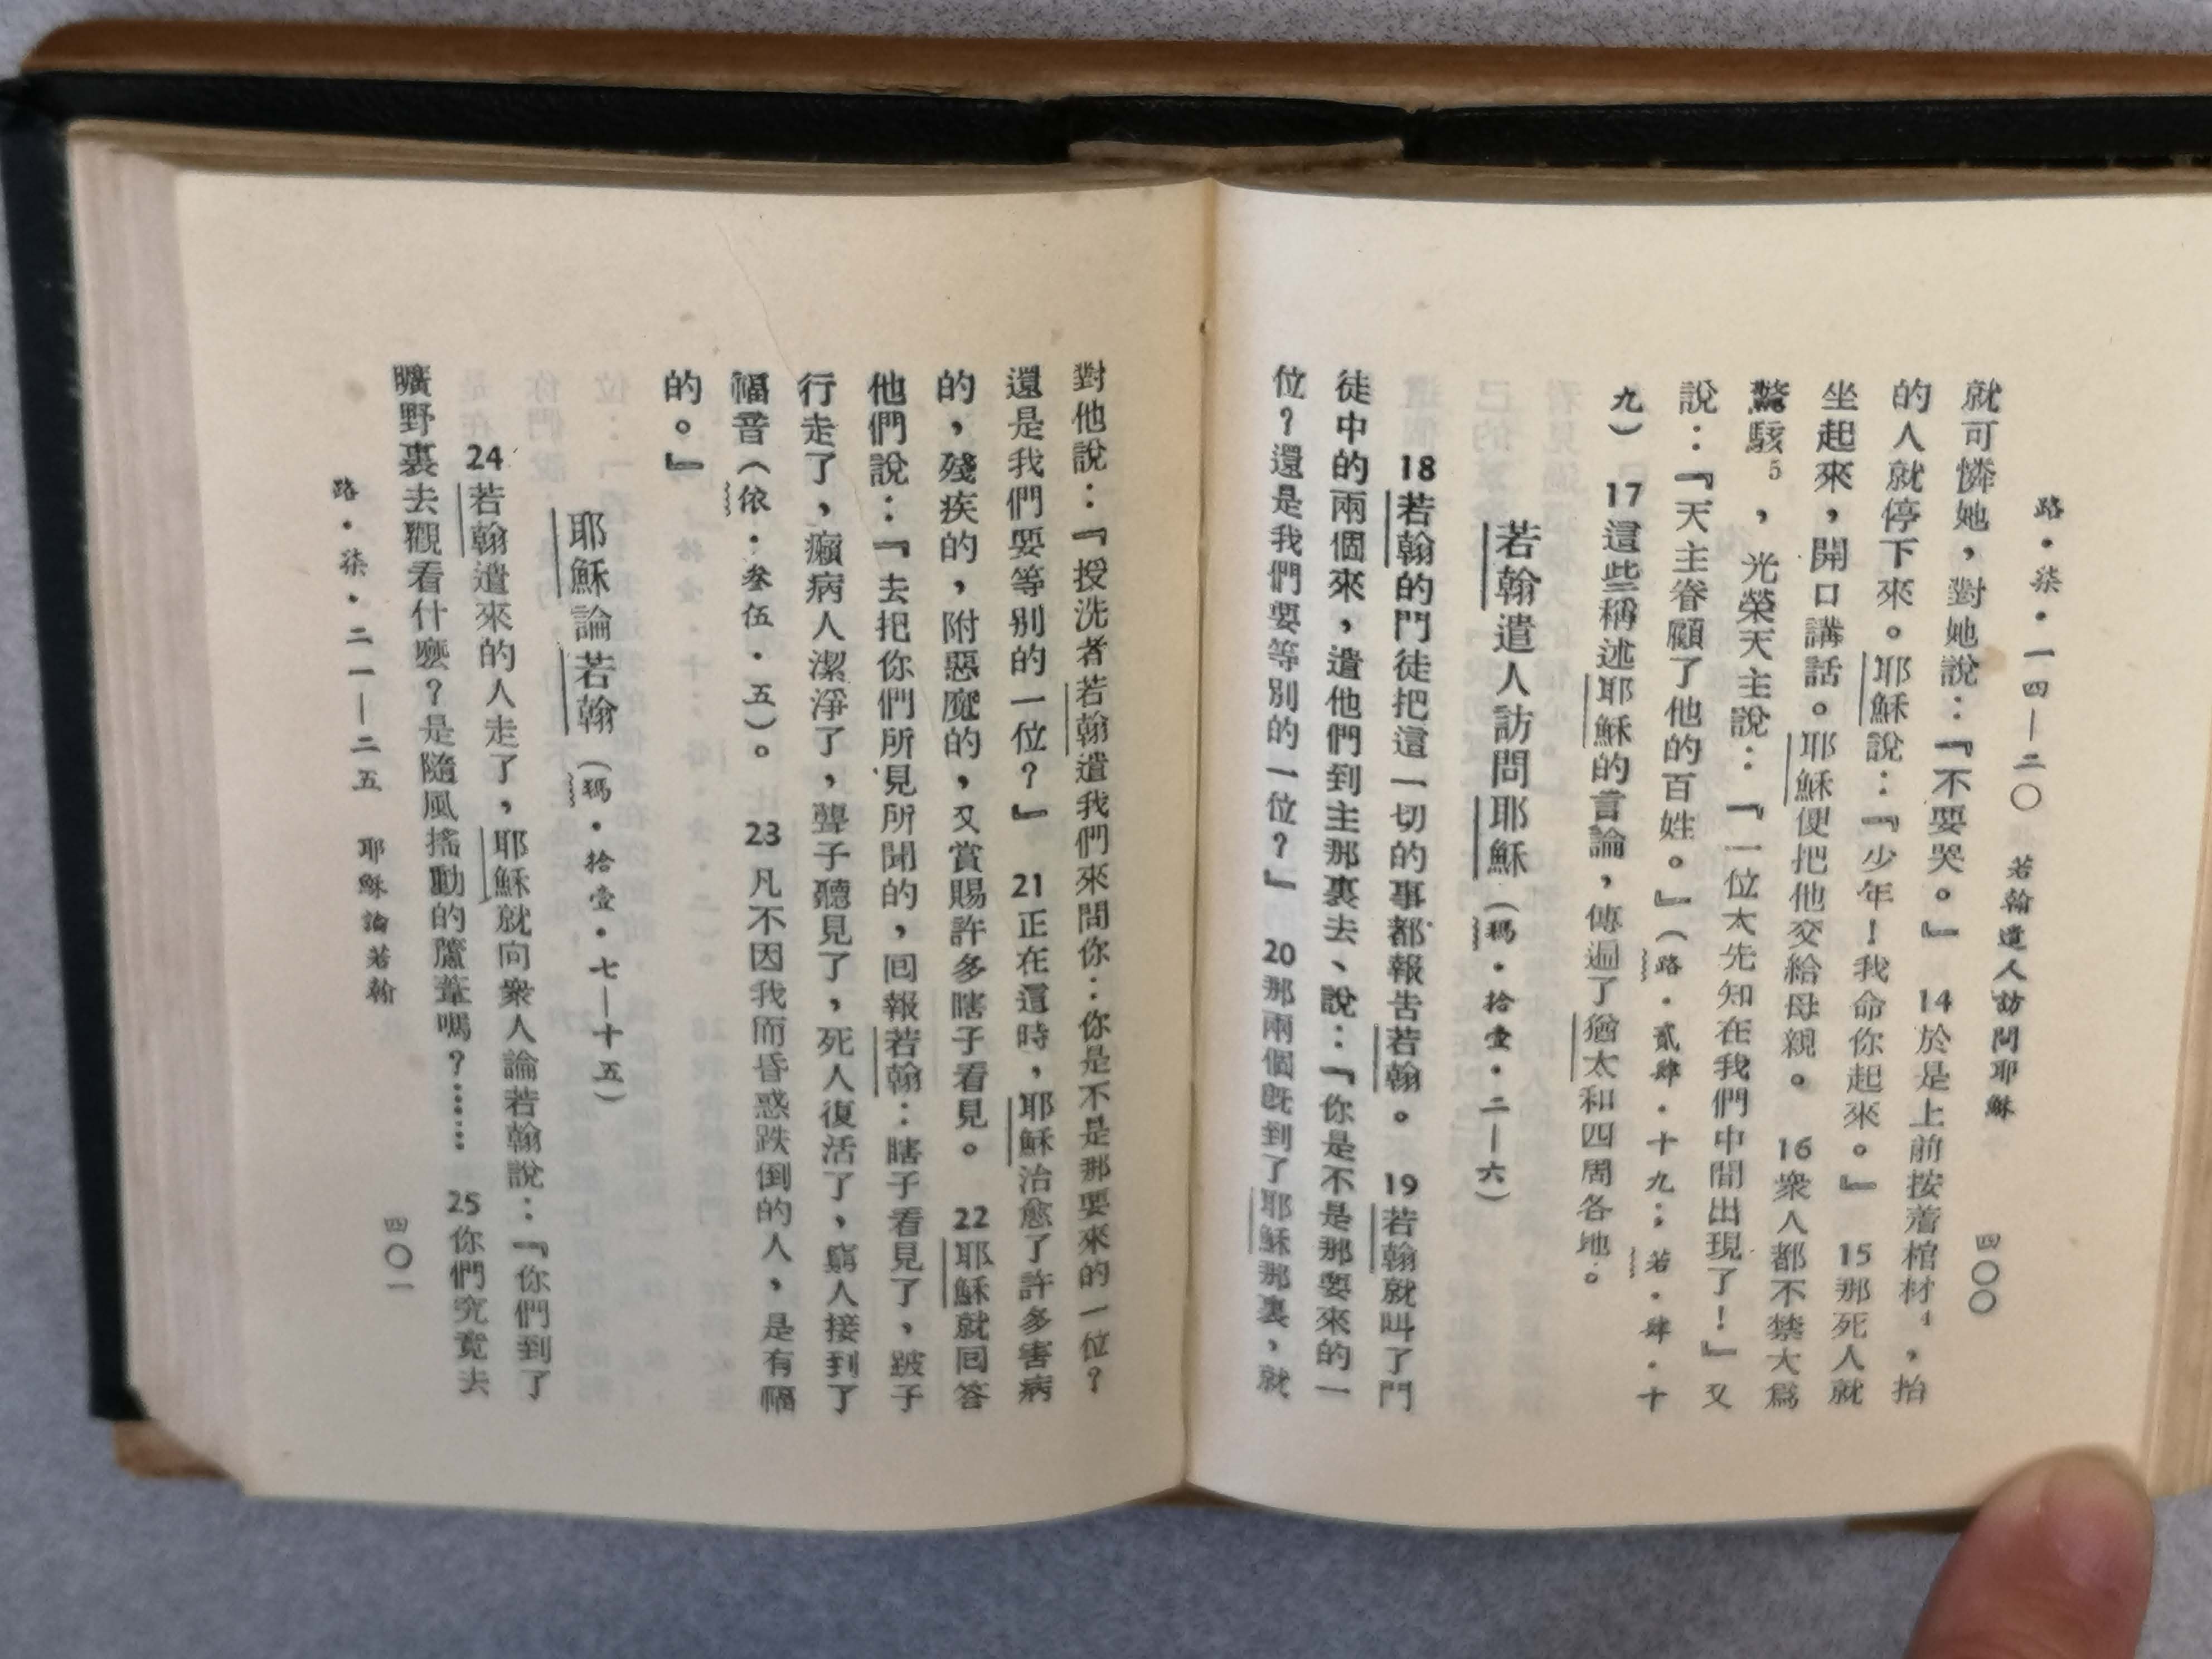 路・柒・一四—二〇　若翰遣人訪問耶穌　四〇〇
就可憐她，對她說：『不要哭。』　14於是上前按着棺材4，抬
的人就停下來。耶穌說：『少年！我命你起來。』　15那死人就
坐起來，開口講話。耶穌便把他交給母親。　16衆人都不禁大爲
驚駭5，光榮天主說：『一位大先知在我們中間出現了！』又
說：『天主眷顧了他的百姓。』（路・貳肆・十九；若・肆・十
九）　17這些稱述耶穌的言論，傳遍了猶太和四周各地。
若翰遣人訪問耶穌（瑪・拾壹・二—六）
18若翰的門徒把這一切的事都報告若翰。　19若翰就叫了門
徒中的兩個來，遣他們到主那裏去、說：『你是不是那要來的一
位？還是我們要等別的一位？』　20那兩個旣到了耶穌那裏，就
對他說：『授洗者若翰遣我們來問你：你是不是那要來的一位？
還是我們要等別的一位？』　21正在這時，耶穌治愈了許多害病
的，殘疾的，附惡魔的，又賞賜許多瞎子看見。　22耶穌就回答
他們說：『去把你們所見所聞的，回報若翰：瞎子看見了，跛子
行走了，癩病人潔淨了，聾子聽見了，死人復活了，窮人接到了
福音（依・叁伍・五）。　23凡不因我而昏惑跌倒的人，是有福
的。』
耶穌論若翰（瑪・拾壹・七—十五）
24若翰遣來的人走了，耶穌就向衆人論若翰說：『你們到了
曠野裏去觀看什麼？是隨風搖動的蘆葦嗎？……　25你們究竟去
路・柒・二一—二五　耶穌論若翰　四〇一